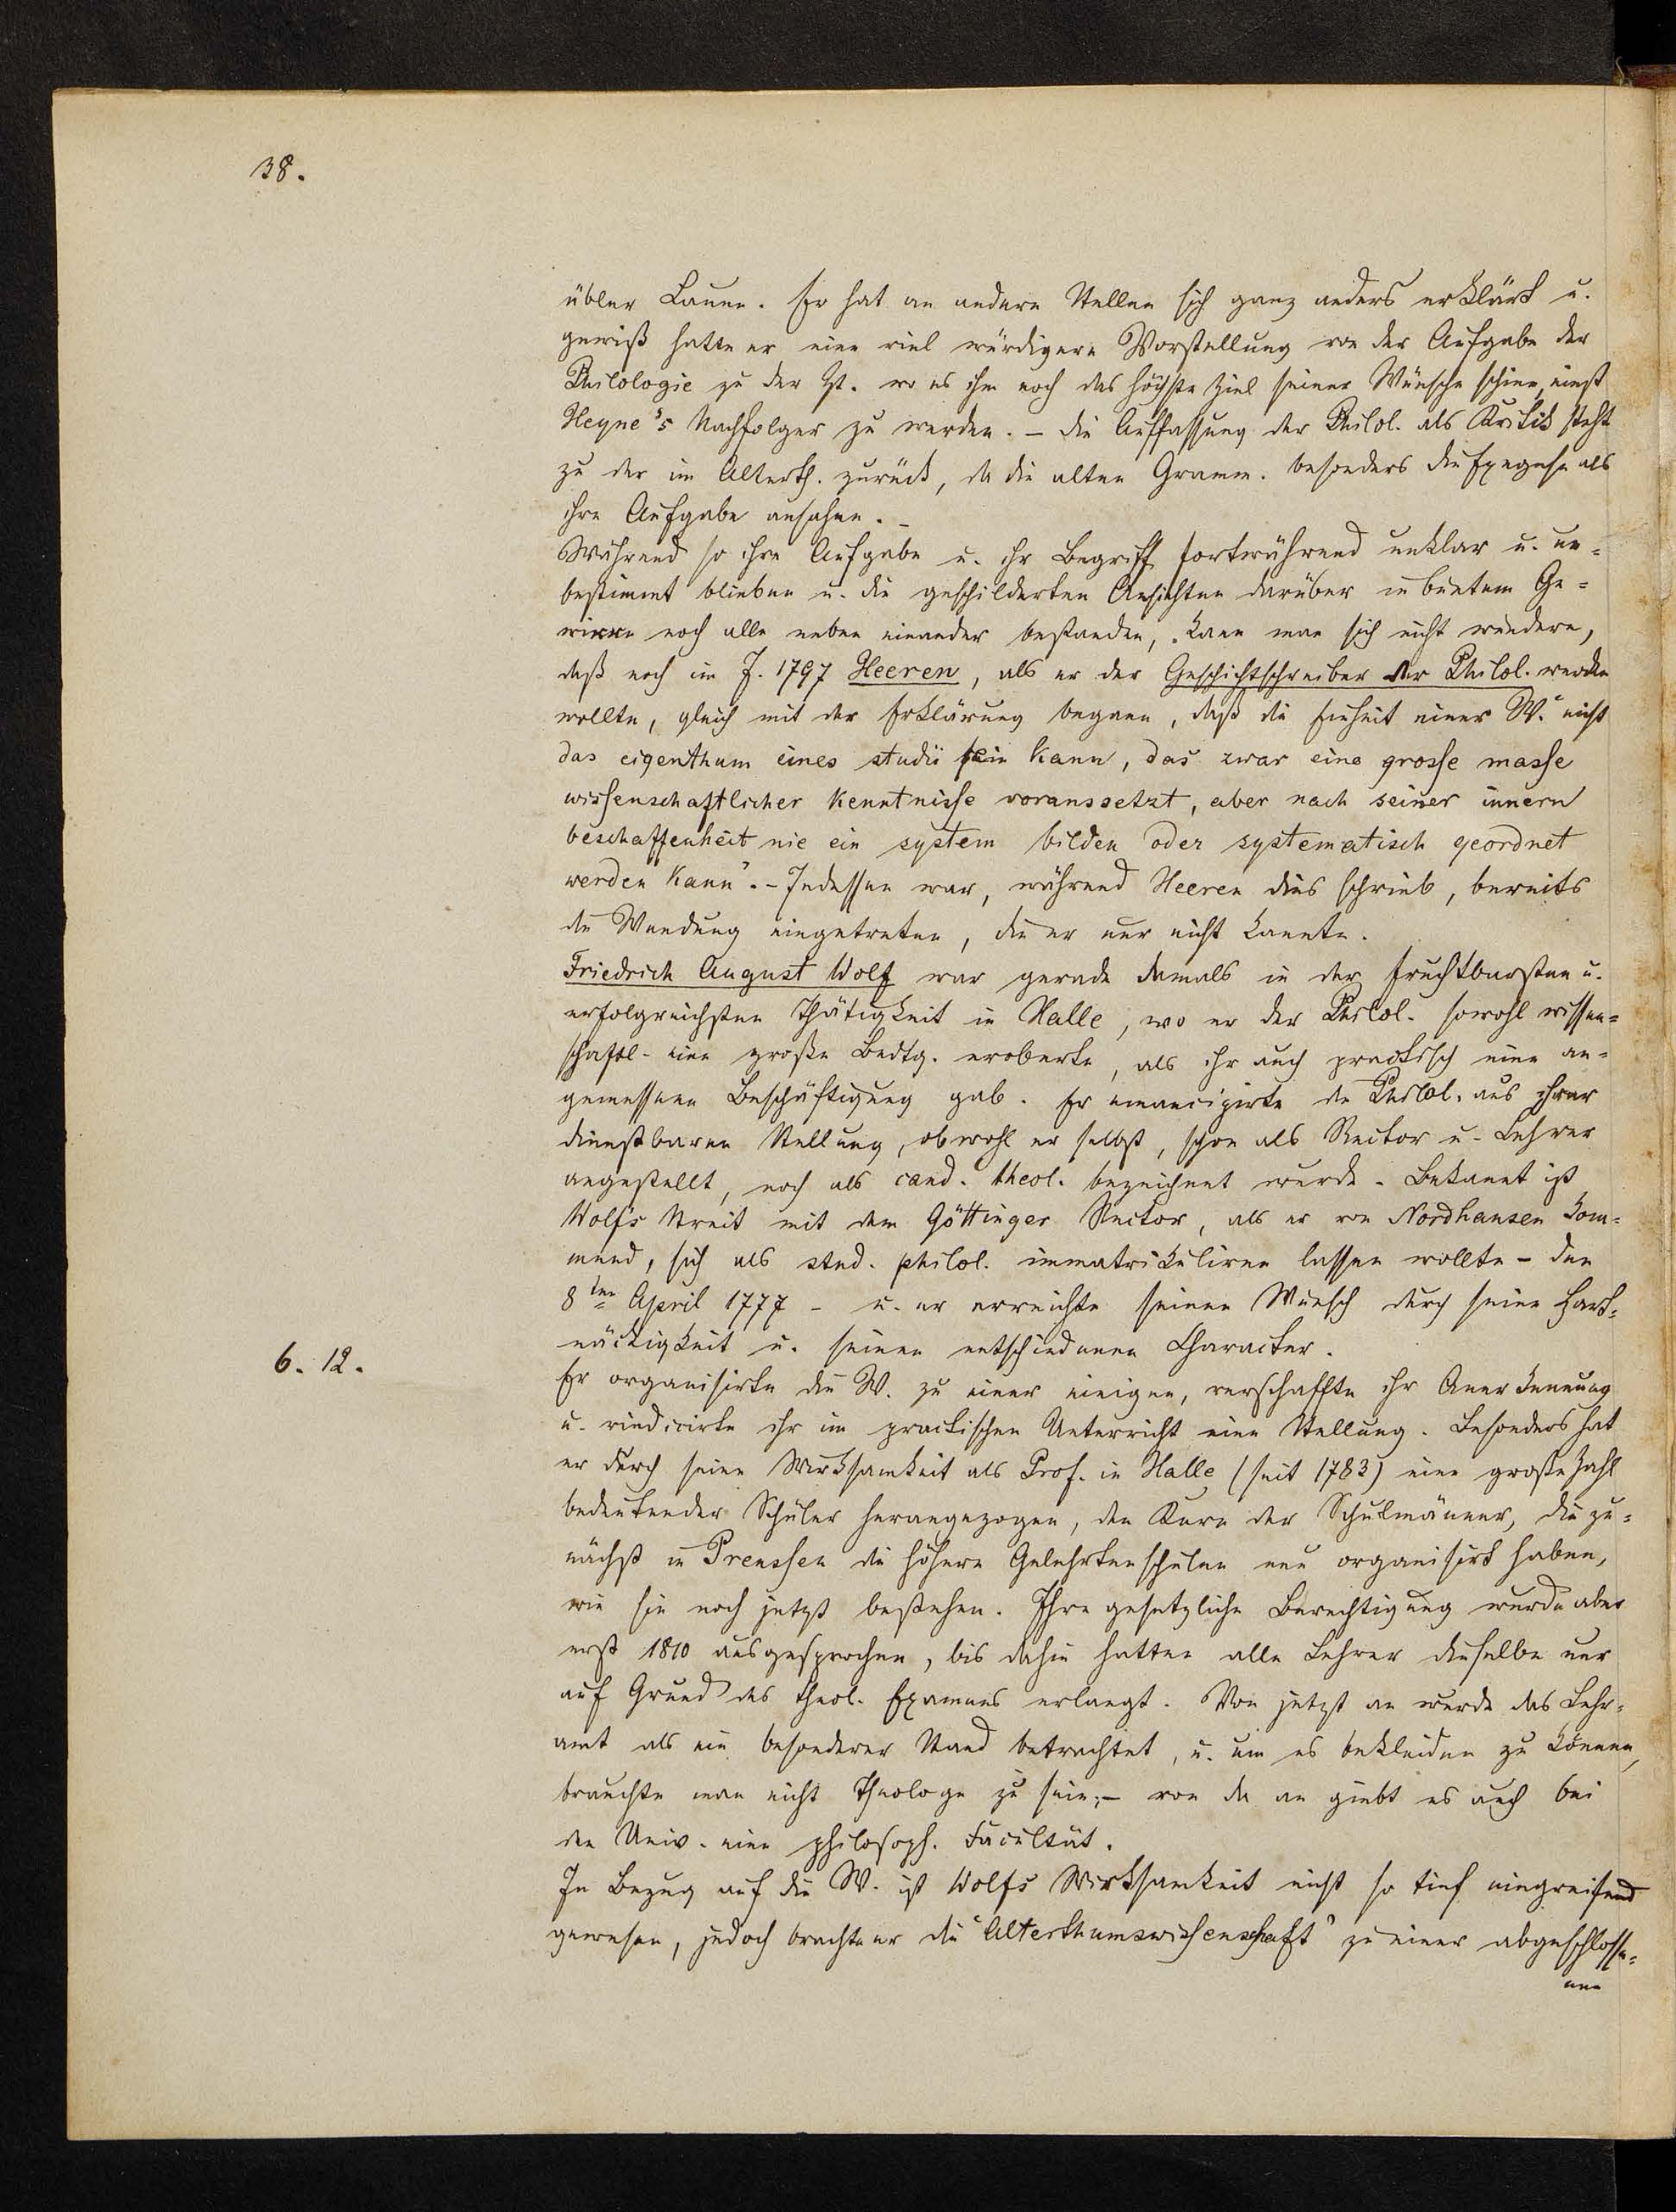 38.
übler Laune. Er hat an andern Stellen sich ganz anders erklärt u.
gewiß hatte er eine viel würdigere Vorstellung von der Aufgabe der
Philologie zu der Zt. wo es ihm noch das höchste Ziel seiner Wünsche schien, einst
Heyne's Nachfolger zu werden. – Die Auffassung der Philol. als Kritik steht
zu der im Alterth. zurück, da die alten Gramm. besonders die Exegese als
ihre Aufgabe ansahen. –
Während so ihre Aufgabe u. ihr Begriff fortwährend unklar u. un-
bestimmt blieben u. die geschilderten Ansichten darüber in buntem Ge-
wirre noch alle neben einander bestanden, kann man sich nicht wundern,
daß noch im J. 1797 Heeren, als er der Geschichtschreiber der Philol. werden
wollte, gleich mit der Erklärung begann, daß die Einheit einer W. "nicht
das eigenthum eines studii sein kann, das zwar eine grosse masse
wissenschaftlicher kenntnisse voraussetzt, aber nach seiner innern
beschaffenheit nie ein system bilden oder systematisch geordnet
werden kann". – Indessen war, während Heeren dies schrieb, bereits
die Wendung eingetreten, die er nur nicht kannte.
Friedrich August Wolf war gerade damals in der fruchtbarsten u.
erfolgreichsten Thätigkeit in Halle, wo er der Philol. sowohl wissen-
schaftl. eine große Bedtg. eroberte, als ihr auch practisch eine an-
gemessene Beschäftigung gab. Er emancipirte die Philol. aus ihrer
dienstbaren Stellung, obwohl er selbst, schon als Rector u. Lehrer
angestellt, noch als cand. theol. bezeichnet wurde. Bekannt ist
Wolfs Streit mit dem Göttinger Rector, als er von Nordhausen kom-
mend, sich als stud. philol. immatrikuliren lassen wollte – den
8ten April 1777 – u. er erreichte seinen Wunsch durch seine Hart-
näckigkeit u. seinen entschiedenen Character.
6. 12.
Er organisirte die W. zu einer einigen, verschaffte ihr Anerkennung
u. vindicirte ihr im practischen Unterricht eine Stellung. Besonders hat
er durch seine Wirksamkeit als Prof. in Halle (seit 1783) eine große Zahl
bedeutender Schüler herangezogen, den Kern der Schulmänner, die zu-
nächst in Preussen die höhern Gelehrtenschulen neu organisirt haben,
wie sie noch jetzt bestehen. Ihre gesetzliche Berechtigung wurde aber
erst 1810 ausgesprochen, bis dahin hatten alle Lehrer dieselbe nur
auf Grund des theol. Examens erlangt. Von jetzt an wurde das Lehr-
amt als ein besonderer Stand betrachtet, u. um es bekleiden zu können,
brauchte man nicht Theologe zu sein; – von da an giebt es auch bei
den Univ. eine philosoph. Facultät.
In Bezug auf die W. ist Wolfs Wirksamkeit nicht so tief eingreifend
gewesen, jedoch brachte er die "Alterthumswissenschaft" zu einer abgeschlosse-
nen